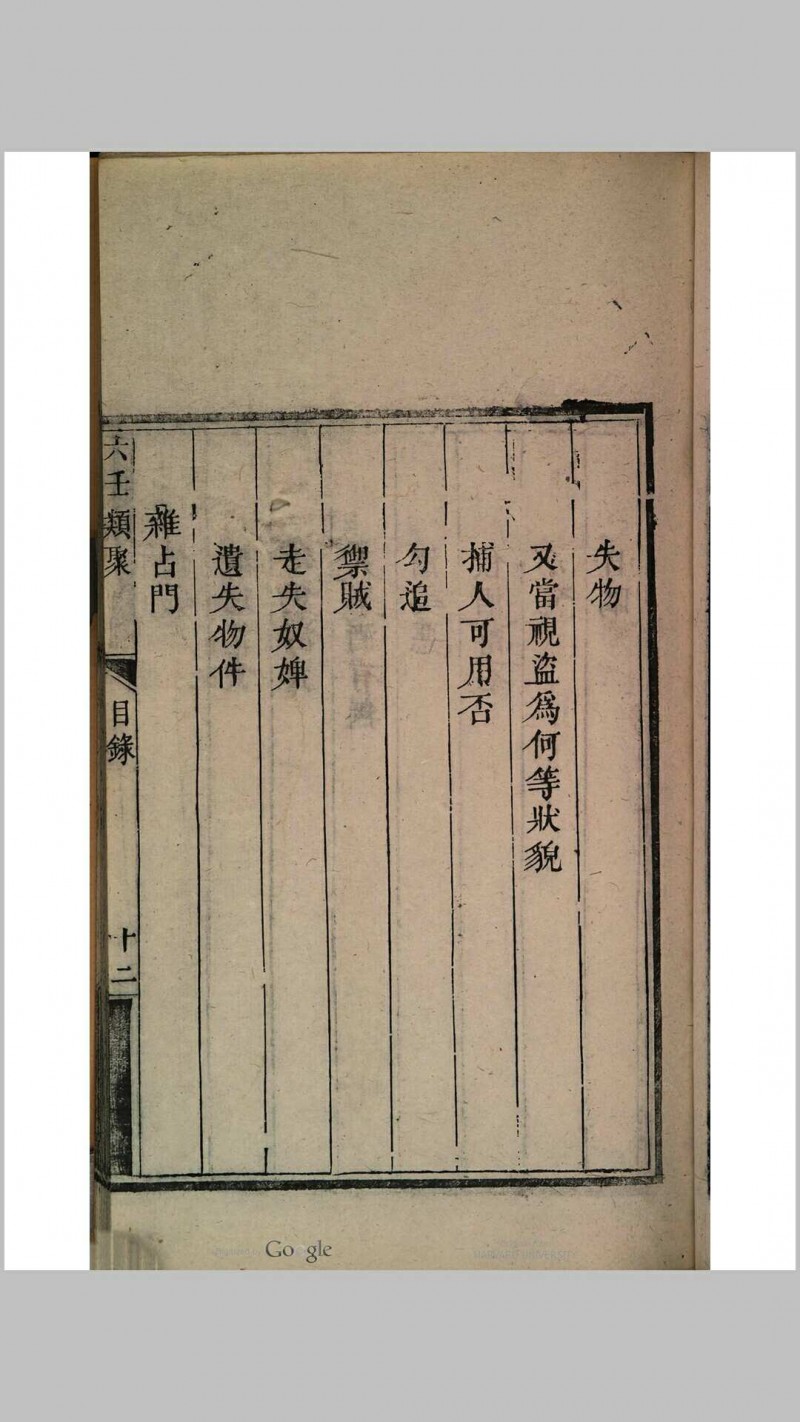 失物
又當視盜爲何等狀貌
捕人可用否
勾追
禦賊
走失奴婢
遺失物件
雜占門
六壬類聚
目錄
十二
Google